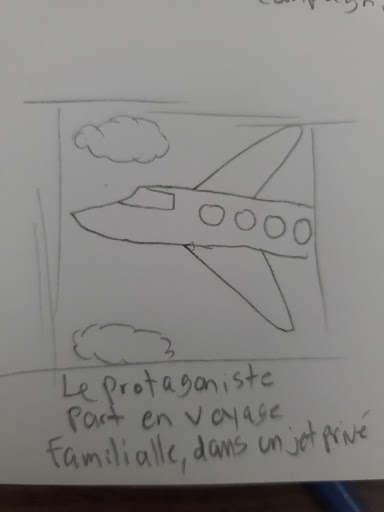 Le protagoniste
Part en voyage
familialle, dans un jet privé